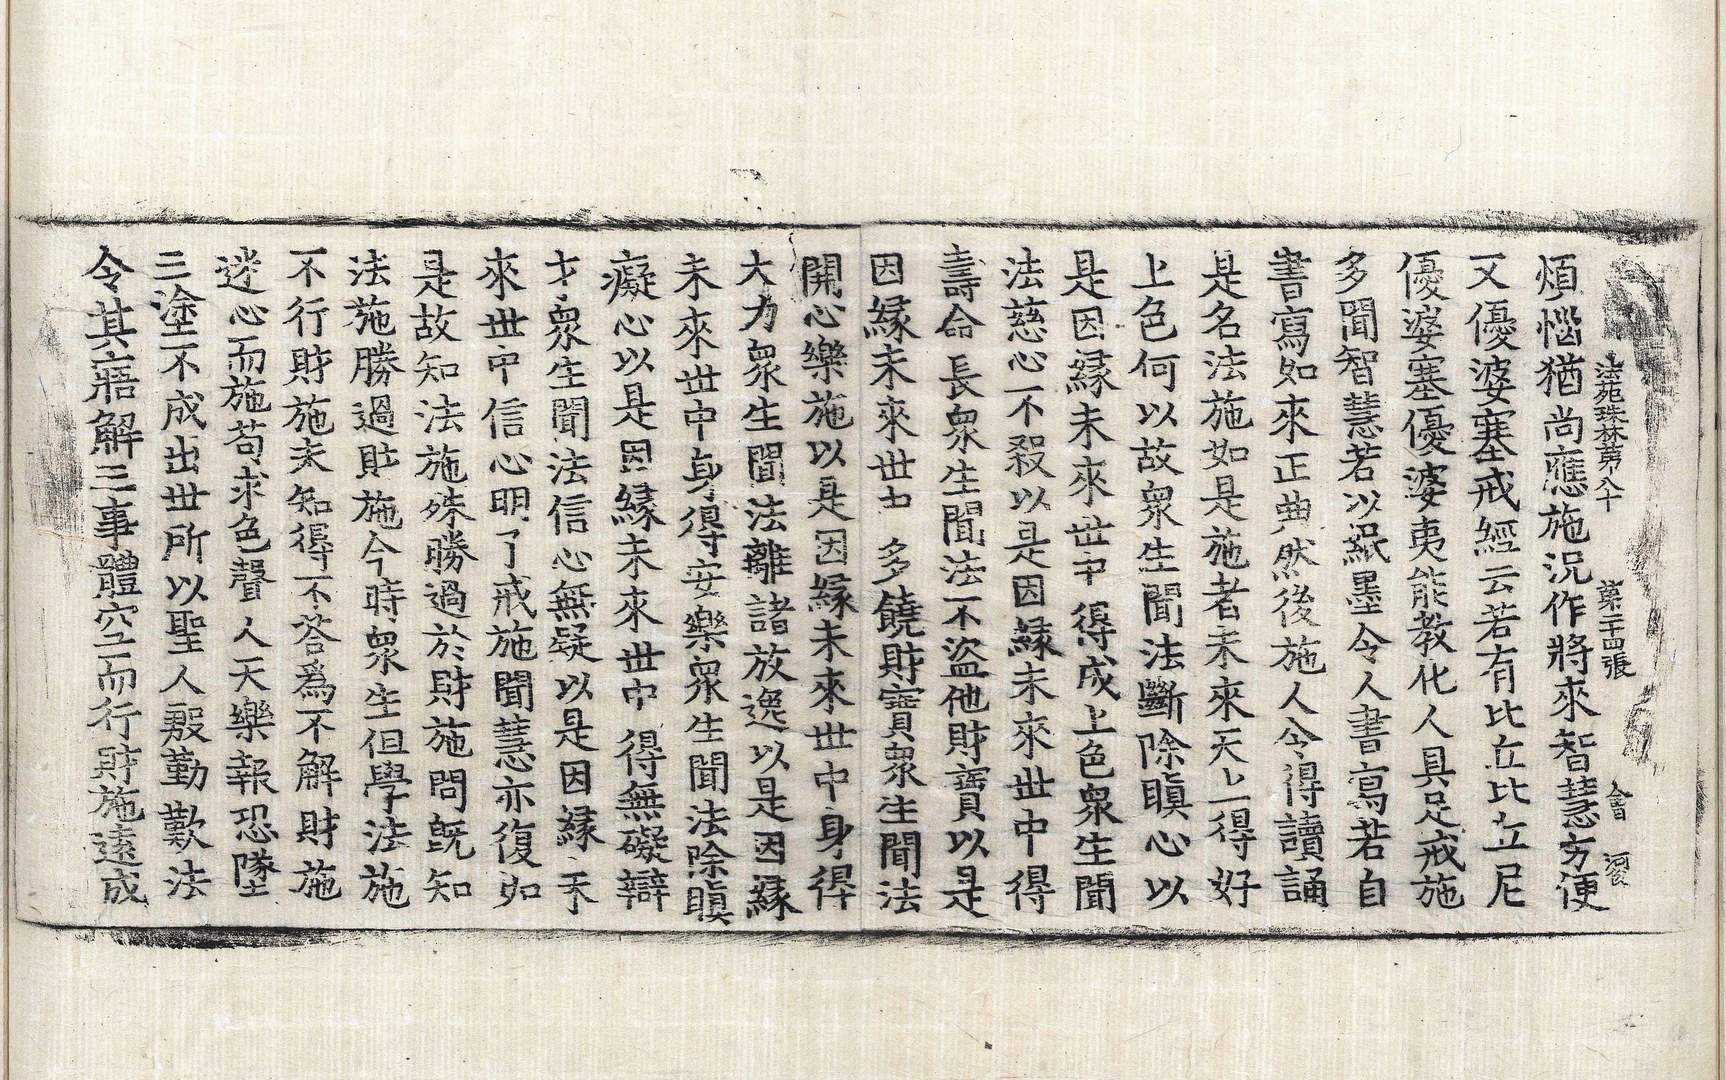 法苑珠林第八十 第二十四張 會 瀅
煩惱猶尚應施況作將來智慧方便
又優婆塞戒經云若有比丘比丘尼
優婆塞優婆夷能教化人具足戒施
多聞智慧若以紙墨令人書寫若自
書寫如來正典然後施人令得讀誦
是名法施如是施者未來天上得好
上色何以故衆生聞法斷除瞋心以
是因緣未來世中得成上色衆生聞
法慈心不殺以是因緣未來世中得
壽命長衆生聞法不盜他財寶以是
因緣未來世中多饒財寶衆生聞法
開心樂施以是因緣未來世中身得
大力衆生聞法離諸放逸以是因緣
未來世中身得安樂衆生聞法除瞋
癡心以是因緣未來世中得無礙辯
才衆生聞法信心無疑以是因緣未
來世中信心明了戒施聞慧亦復如
是故知法施殊勝過於財施問旣知
法施勝過財施今時衆生但學法施
不行財施未知得不答爲不解財施
迷心而施苟求色聲人天樂報恐墜
三塗不成出世所以聖人殷勤歎法
令其寤解三事體空而行財施遠成